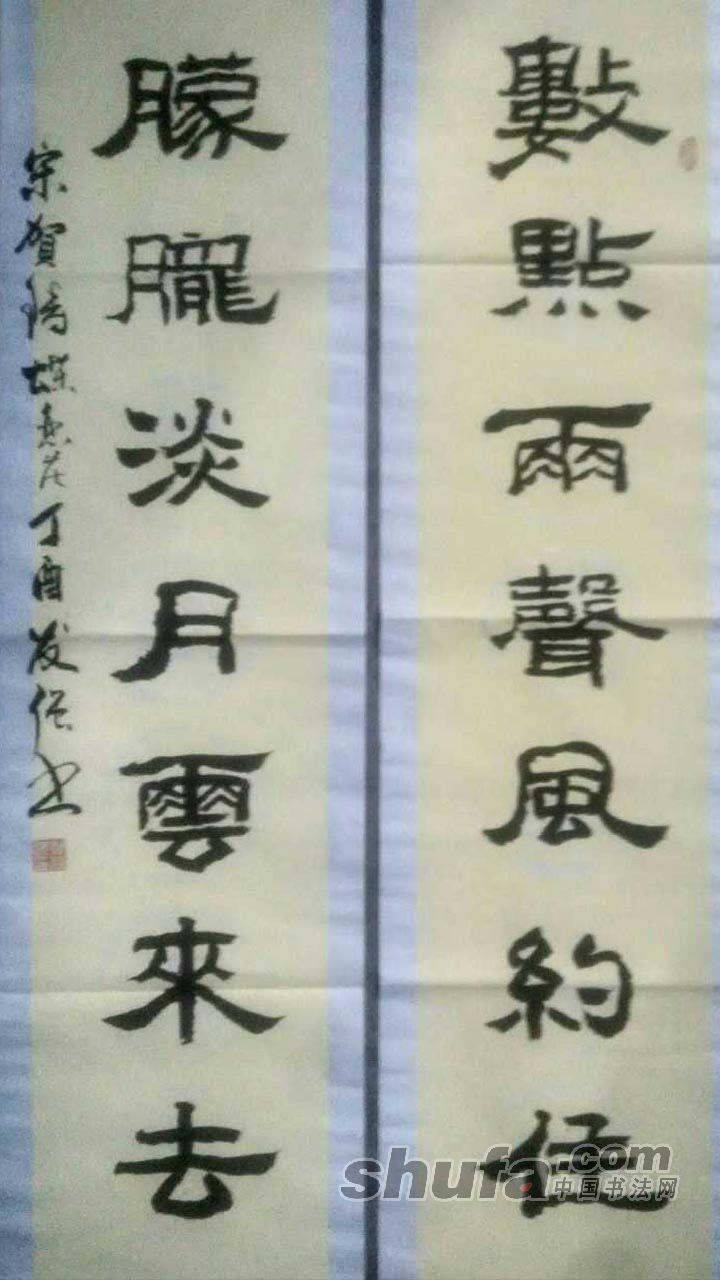 數點雨聲風約住
朦朧淡月雲來去
宋賀鑄蝶恋花丁酉发书
shufa.com
中国书法网